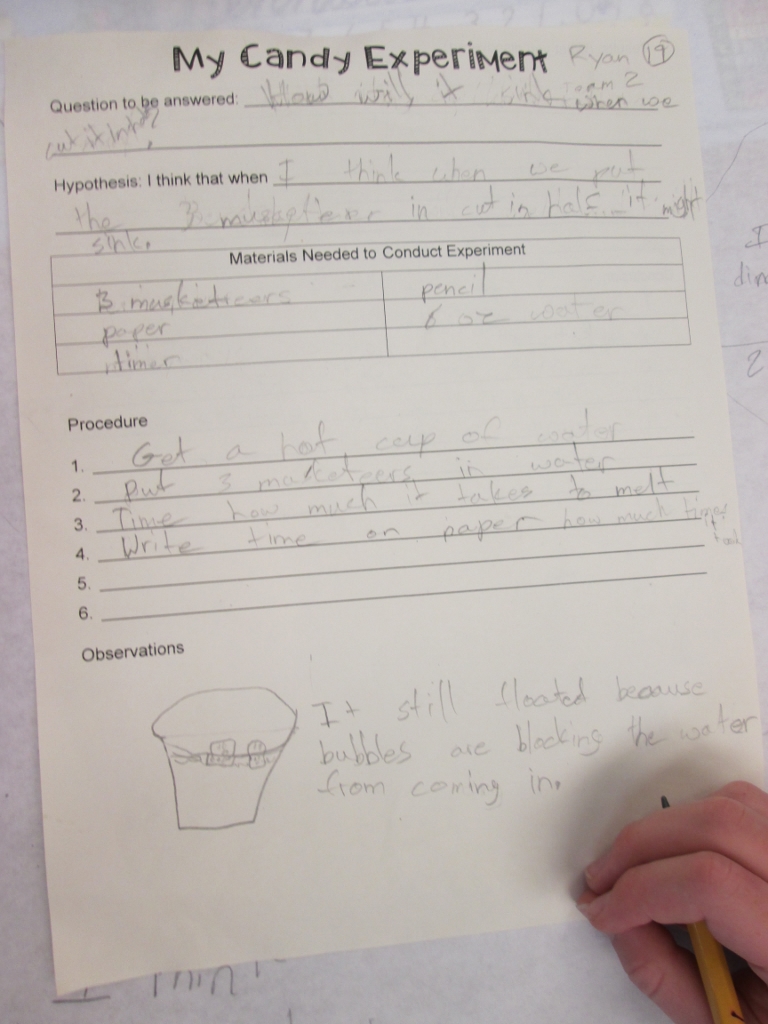 My Candy Experiment Ryan 19
Question to be answered: How will it sink when we
cut it
Hypothesis: I think that when I think when we put
the 3 musketeer in cut in half it might
sink.
Materials Needed to Conduct Experiment
3 musketeers pencil
paper 6 oz water
timer
Procedure
1. Get a hot cup of water
2. put 3 musketeers in water
3. Time how much it takes to melt
4. Write time on paper how much time
5.
6.
Observations
It still floated because
bubbles are blocking the water
from coming in.
I
2
I